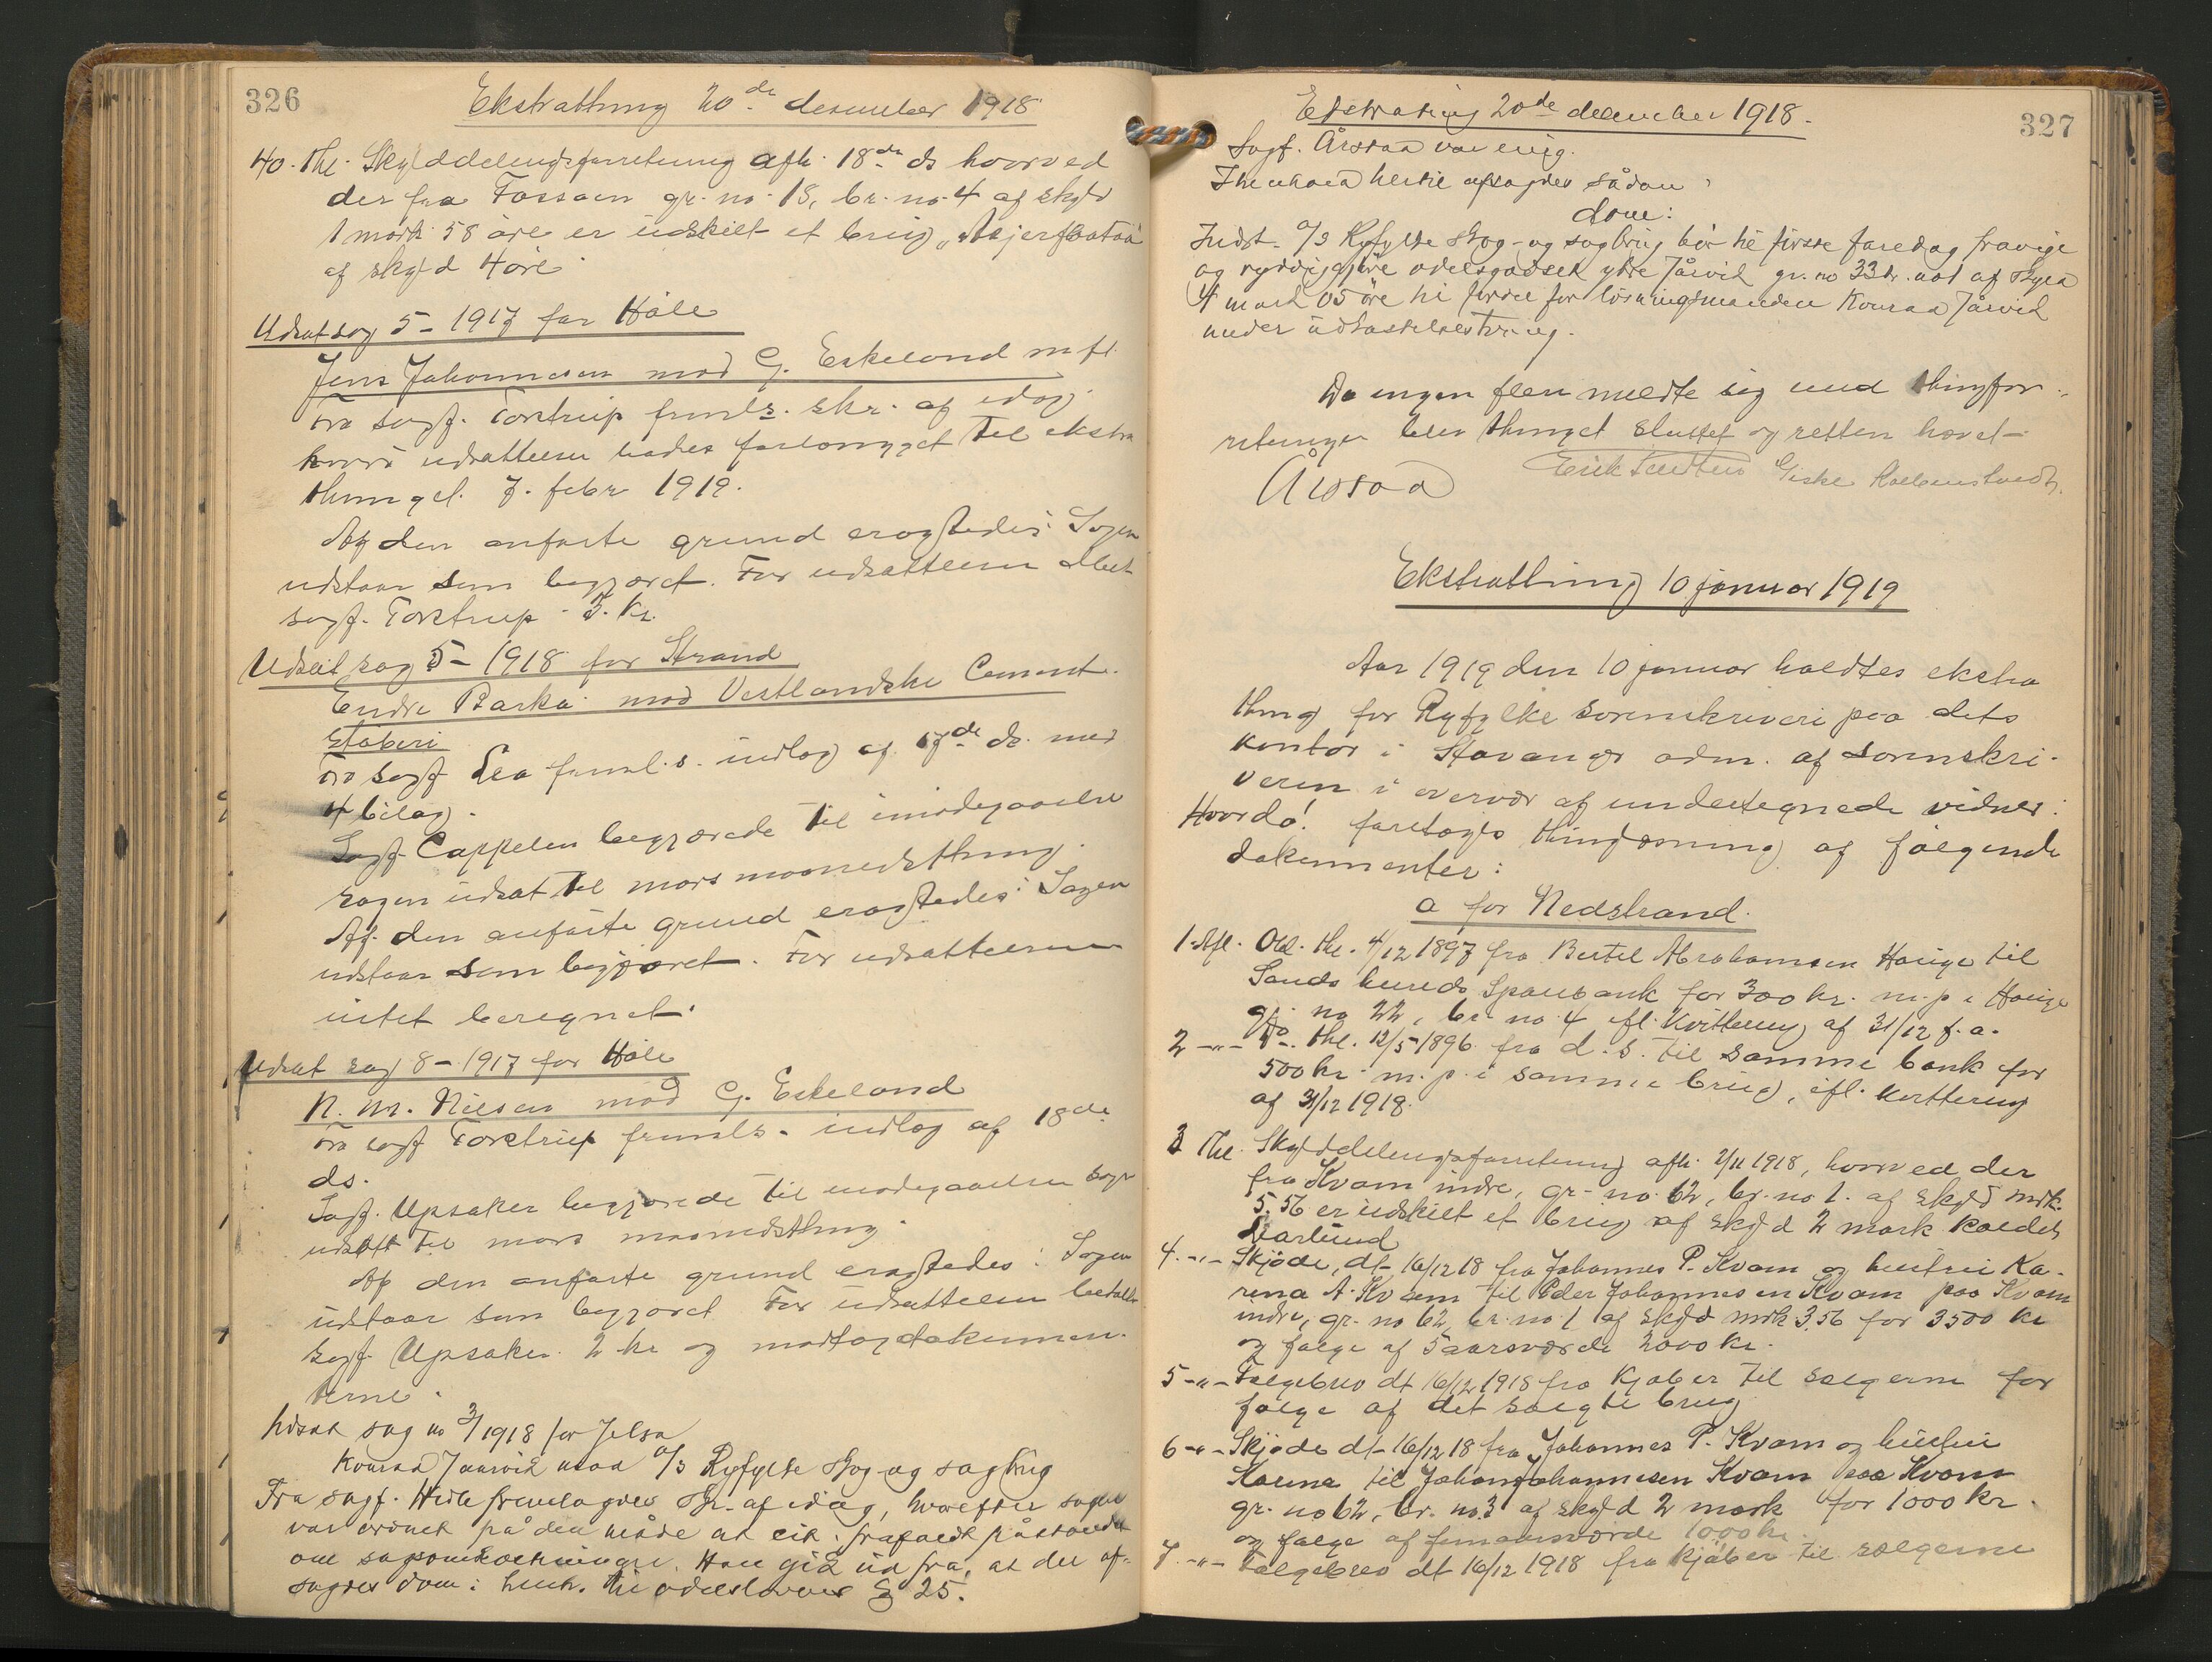 326
Ekstrathing 20de desember 1918
40. Thl. Skylddelingsforretning afh. 18de ds hvorved
der fra Fossaen gr. no. 18, br. no. 4 af skyld
1 mark 58 øre er udskilt et brug
af skyld 4 øre
Udsat sag 5 - 1917 for Høle
Jens Johannesen mod G. Eskeland m fl.
Fra sagf. Torstrup fremls. skr. af idag
hvori udsættelse bades forlænget til ekstra
thinget 7. febr 1919.
Af den anførte grund eragtedes: Sagen
udstaar som begjæret. For udsættelsen
sagf. Torstrup 3. kr.
Udsat sag 5 - 1918 for Strand
Endre Barka mod Vestlandske Cement-
støberi
Fra sagf Lea freml. s. indlæg af 17de ds. med
4 bilag.
Sagf. Cappelen begjærede til imødegaaelse
sagen udsat til mars maanedsthing.
Af den anførte grund eragtedes: Sagen
udstaar som begjæret. For udsættelsen
intet beregnet.
Udsat sag 8 - 1917 for Høle
N. M. Nilsen mod G. Eskeland
Fra sagf Torstrup fremls. indlæg af 18de
ds.
Sagf. Upsaker begjærede til imødegaaelse sagen
udsatt til mars maanedsthing.
Af den anførte grund eragtedes: Sagen
udstaar som begjæret For udsættelsen betalte
sagf. Upsaker 2 kr og modtog dokumen-
terne.
Udsat sag no 3/1918 for Jelsa
Konrad Jaarvik mod A/S Ryfylke Skog- og sagbrug
Fra sagf. Heile fremlagdes skr. af idag, hvorefter sagen
var ordnet på den måde at cit. frafaldt påstanden
om sagsomkostninger. Han gik ud fra, at der af-
sagdes dom i henh. til odelslovens § 25.
327
Ekstrating 20de december 1918.
Sagf. Årstad var enig.
I henhold hertil afsagdes sådan
dom:
Indst. A/S Ryfylke Skog- og sagbrug bør til første faredag fravige
og ryddiggjøre odelsgodset ytre Jårvik gr. no 33 br. no 1 af skyld
4 mark 05 øre til fordel for løsningsmanden Konrad Jårvik
under udkastelsestvang.
Da ingen flere meldte sig med thingfor-
retninger blev thinget sluttet og retten hævet.
Årstad
Ekstrathing 10 januar 1919
Aar 1919 den 10 januar holdtes ekstra
thing for Ryfylke sorenskriveri paa dets
kontor i Stavanger adm. af sorenskri-
veren i overvær af undertegnede vidner:
Hvorda! foretoges thinglæsning af følgende
dokumenter:
a for Nedstrand.
1. Afl. Obl. thl. 4/12 1897 fra Bertel Abrahamsen Hauge til
Sands herreds Sparebank for 300 kr. m. p. i Hauge
gr. no 22, br. no. 4 ifl. kvittering af 31/12 f. a.
2 -"- Do. thl. 12/5 1896 fra d. s. til samme bank for
500 kr. m. p. i samme brug, ifl. kvittering
af 31/12 1918.
3 Thl. Skylddelingsforretning afh. 2/11 1918, hvorved der
fra Kvam indre, gr. no. 62, br. no 1. af skyld mrk.
5.56 er udskilt et brug af skyld 2 mark kaldet
Darlund
4. -"- Skjøde, dt. 16/12 18 fra Johannes P. Kvam og hustru Ka-
rina A. Kvam til Peder Johannesen Kvam paa Kvam
indre, gr. no 62, br. no 1 af skyld mrk 3.56 for 3500 kr
og følge af 5 aarsværdi 2000 kr.
5 -"- Følgebrev dt 16/12 1918 fra kjøber til sælgerne for
følge af det solgte brug
6 -"- Skjøde dt 16/12 18 fra Johannes P. Kvam og hustru
Karina til Johan Johannesen Kvam paa Kvam
gr. no 62, br. no. 3 af skyld 2 mark for 1000 kr.
og følge af femaarsværdi 1000 kr.
7. -"- Følgebrev dt 16/12 1918 fra kjøber til sælgerne